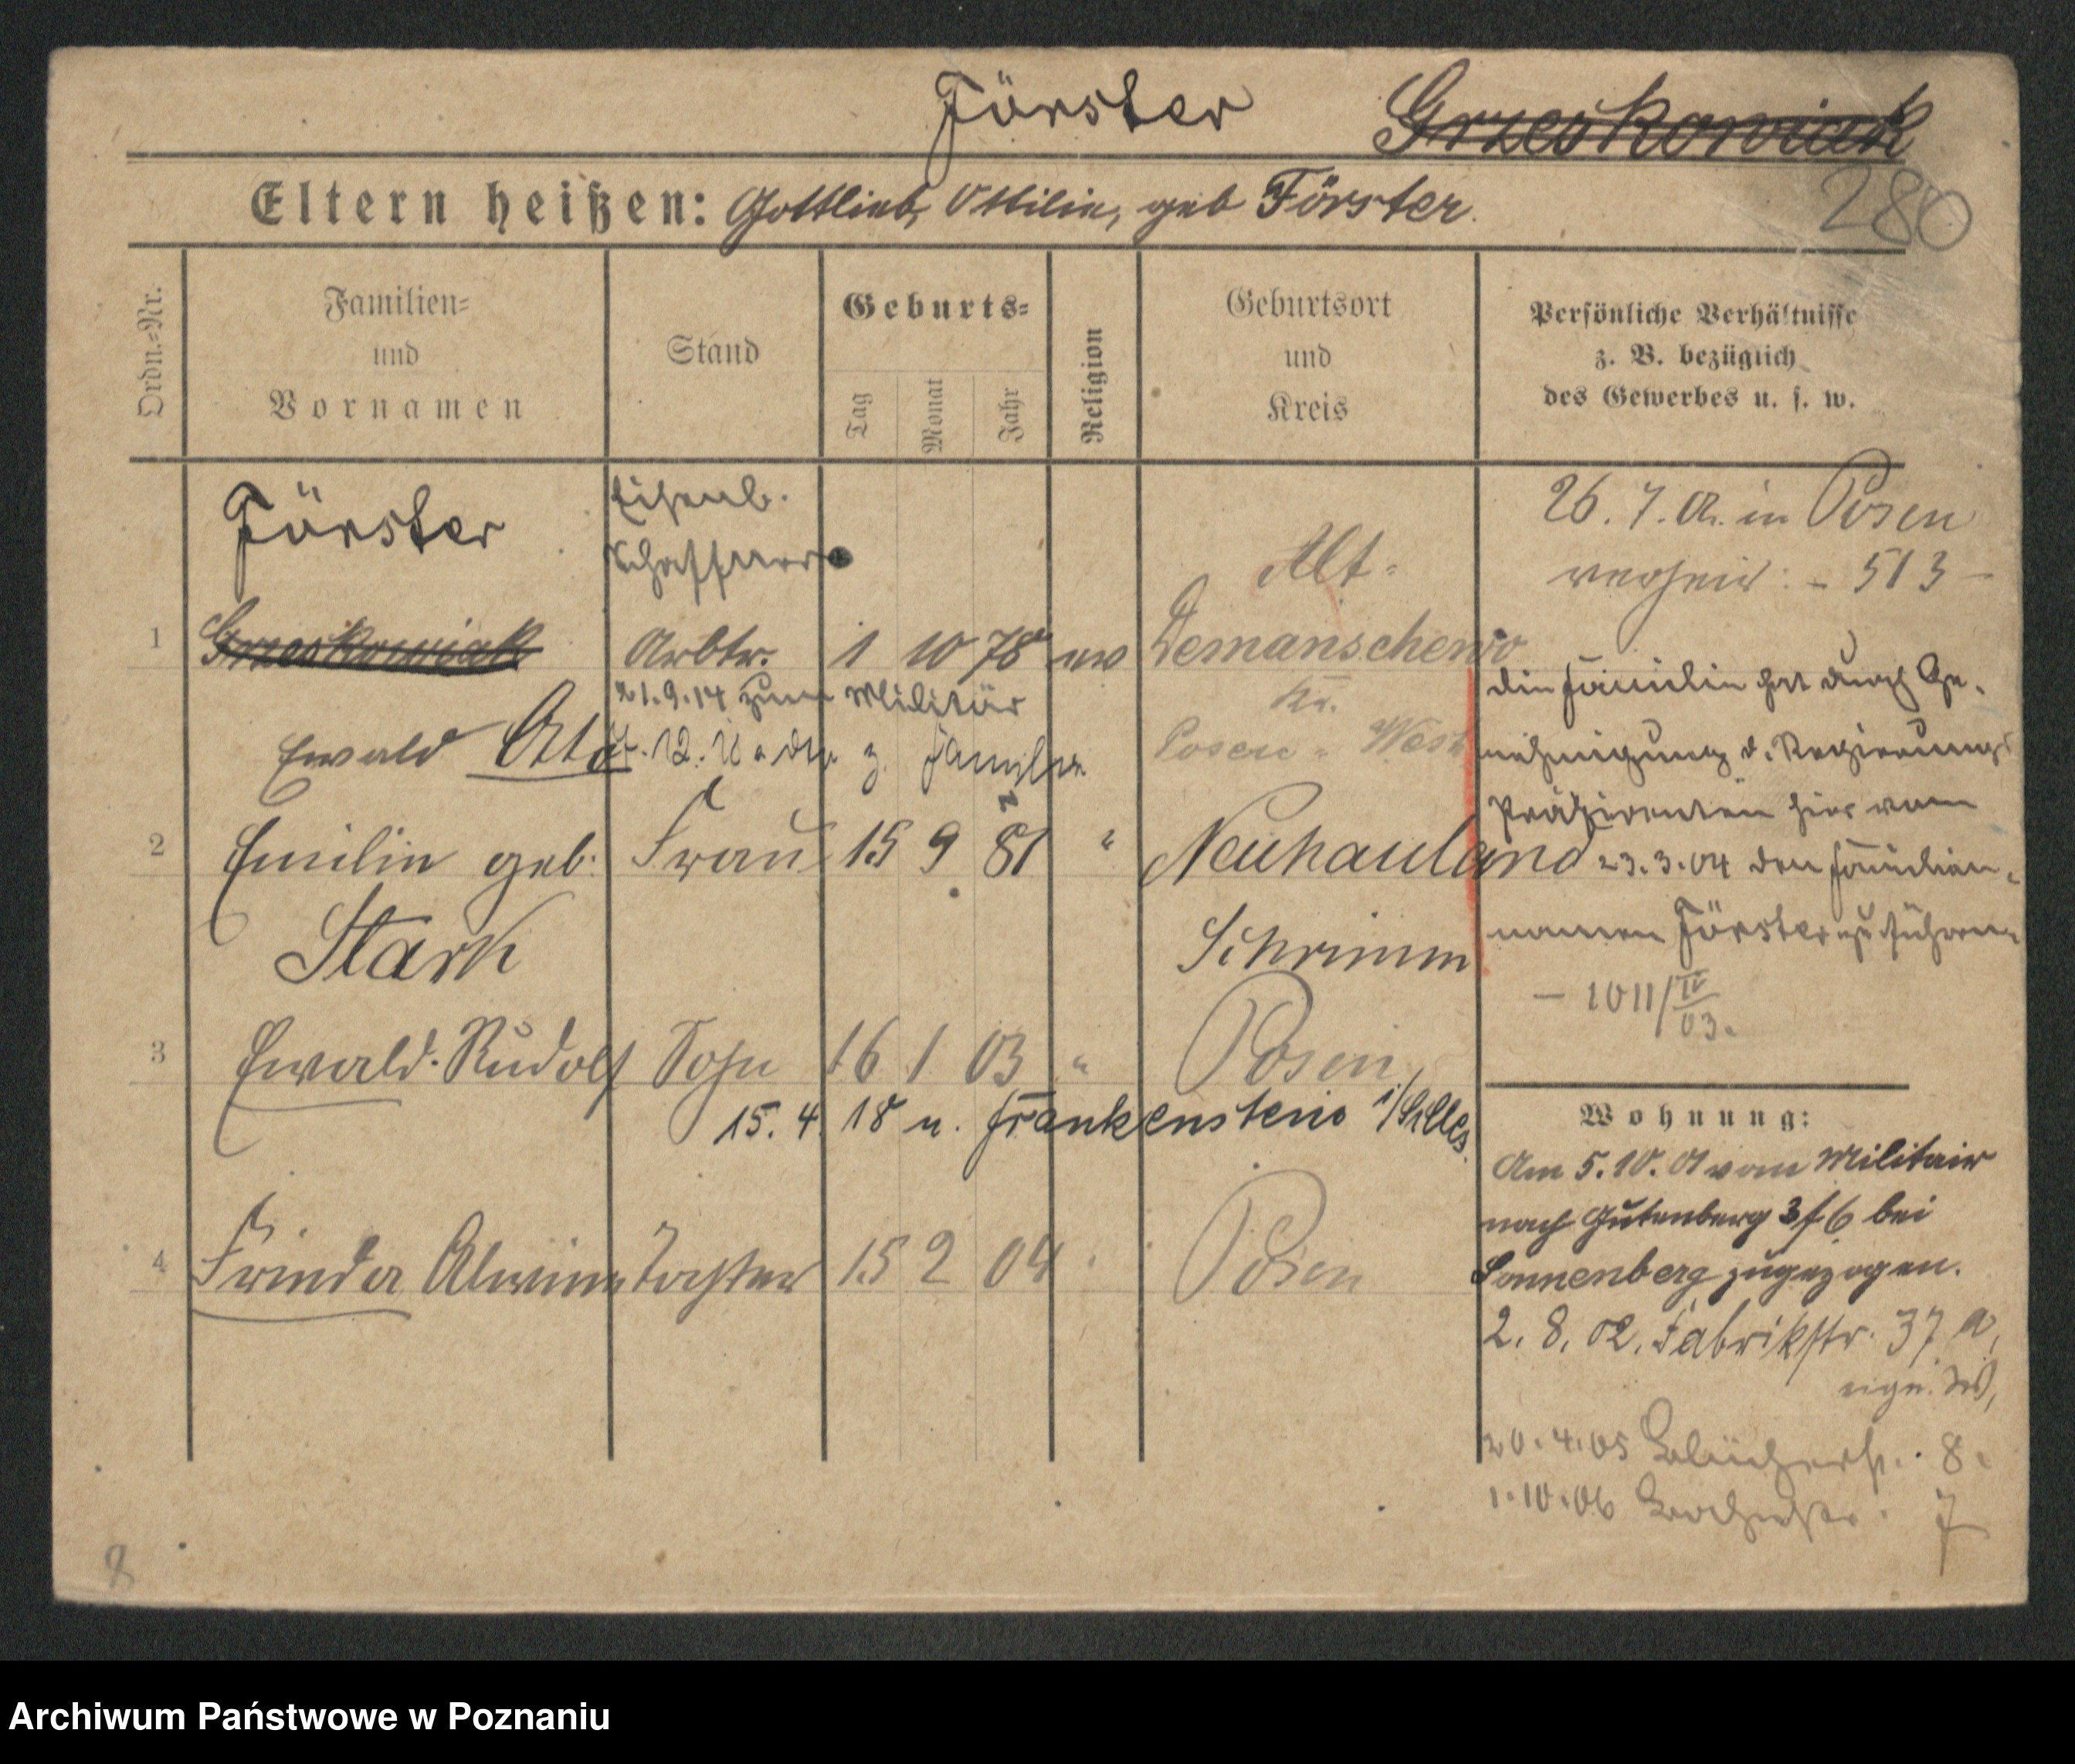 Förster Grzeskowiak
280
Eltern heißen: Gottlieb, Ottilie, geb Förster.
Ordn.-Nr.
Familien-
und
Vornamen
Stand
Geburts-
Tag
Monat
Jahr
Religion
Geburtsort
und
Kreis
Persönliche Verhältnisse
z. B. bezüglich
des Gewerbes u. s. w.
Förster Eisenb.
Schaffner
1 Grzeskowiak Arbtr. 1 10 78 ev Alt-
Demanschewo
Kr.
Posen-West
21.9.14 zum Militär
Ewald Otto
z. Familie
2 Emilie geb: Frau 15 9 81 " Neuhauland
Stark Schrimm
3 Ewald Rudolf Sohn 16 1 03 " Posen
15. 4. 18 n. Frankenstein i/Schles.
4 Frieda Alwine Tochter 15 2 04 Posen
26. 7. 02. in Posen
verheir: - 513 -
die Familie hat durch Ge-
nehmigung d. Regierungs
Präsidenten hier vom
23.3.04 den Familien-
namen Förster zu führen
- 1011/IV
03.
Wohnung:
Am 5.10.01 vom Militair
nach Gutenberg 3f6 bei
Sonnenberg zugezogen.
2. 8. 02. Fabrikstr. 37 a,
eign. W,
20.4.05 Blücherstr. 8.
1.10.06 7
8
Archiwum Państwowe w Poznaniu